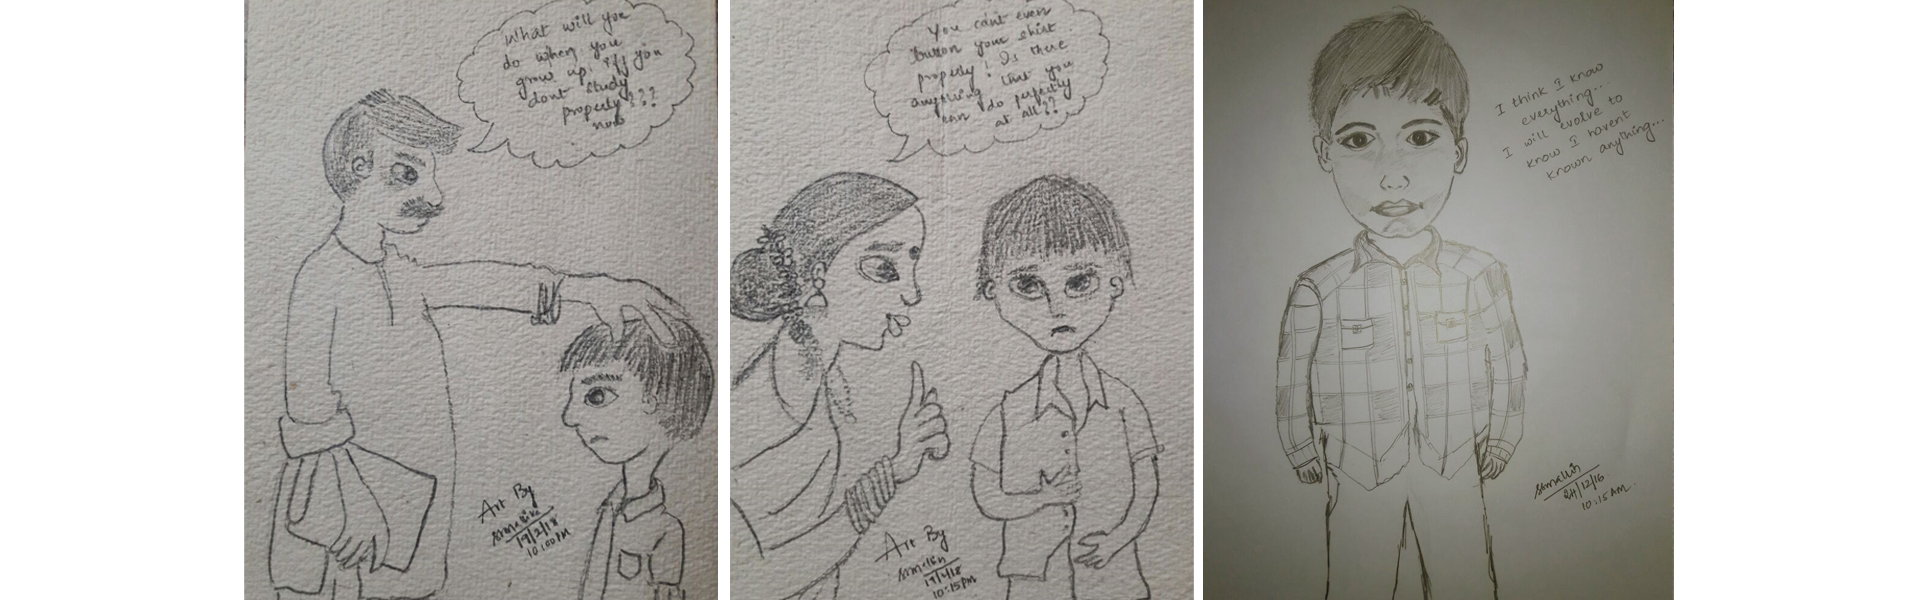 What will you
do when you
grow up, iff you
dont study
properly???
now
Art By
19/2/18
10:00 PM
You can't even
button your shirt
properly! Is there
anything that you
can do perfectly
at all??
Art By
10:15PM
I think I know
everything...
I will evolve to
know I havent
known anything...
24/12/16
10:15 AM.